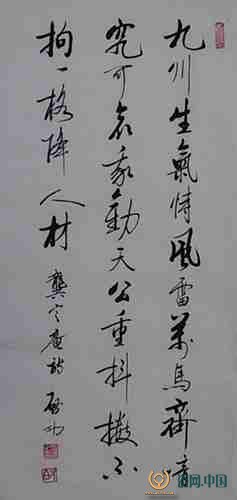 九州生氣恃風雷萬馬齊喑
究可哀我勸天公重抖擻不
拘一格降人材 龔定庵詩 启功
网.中国